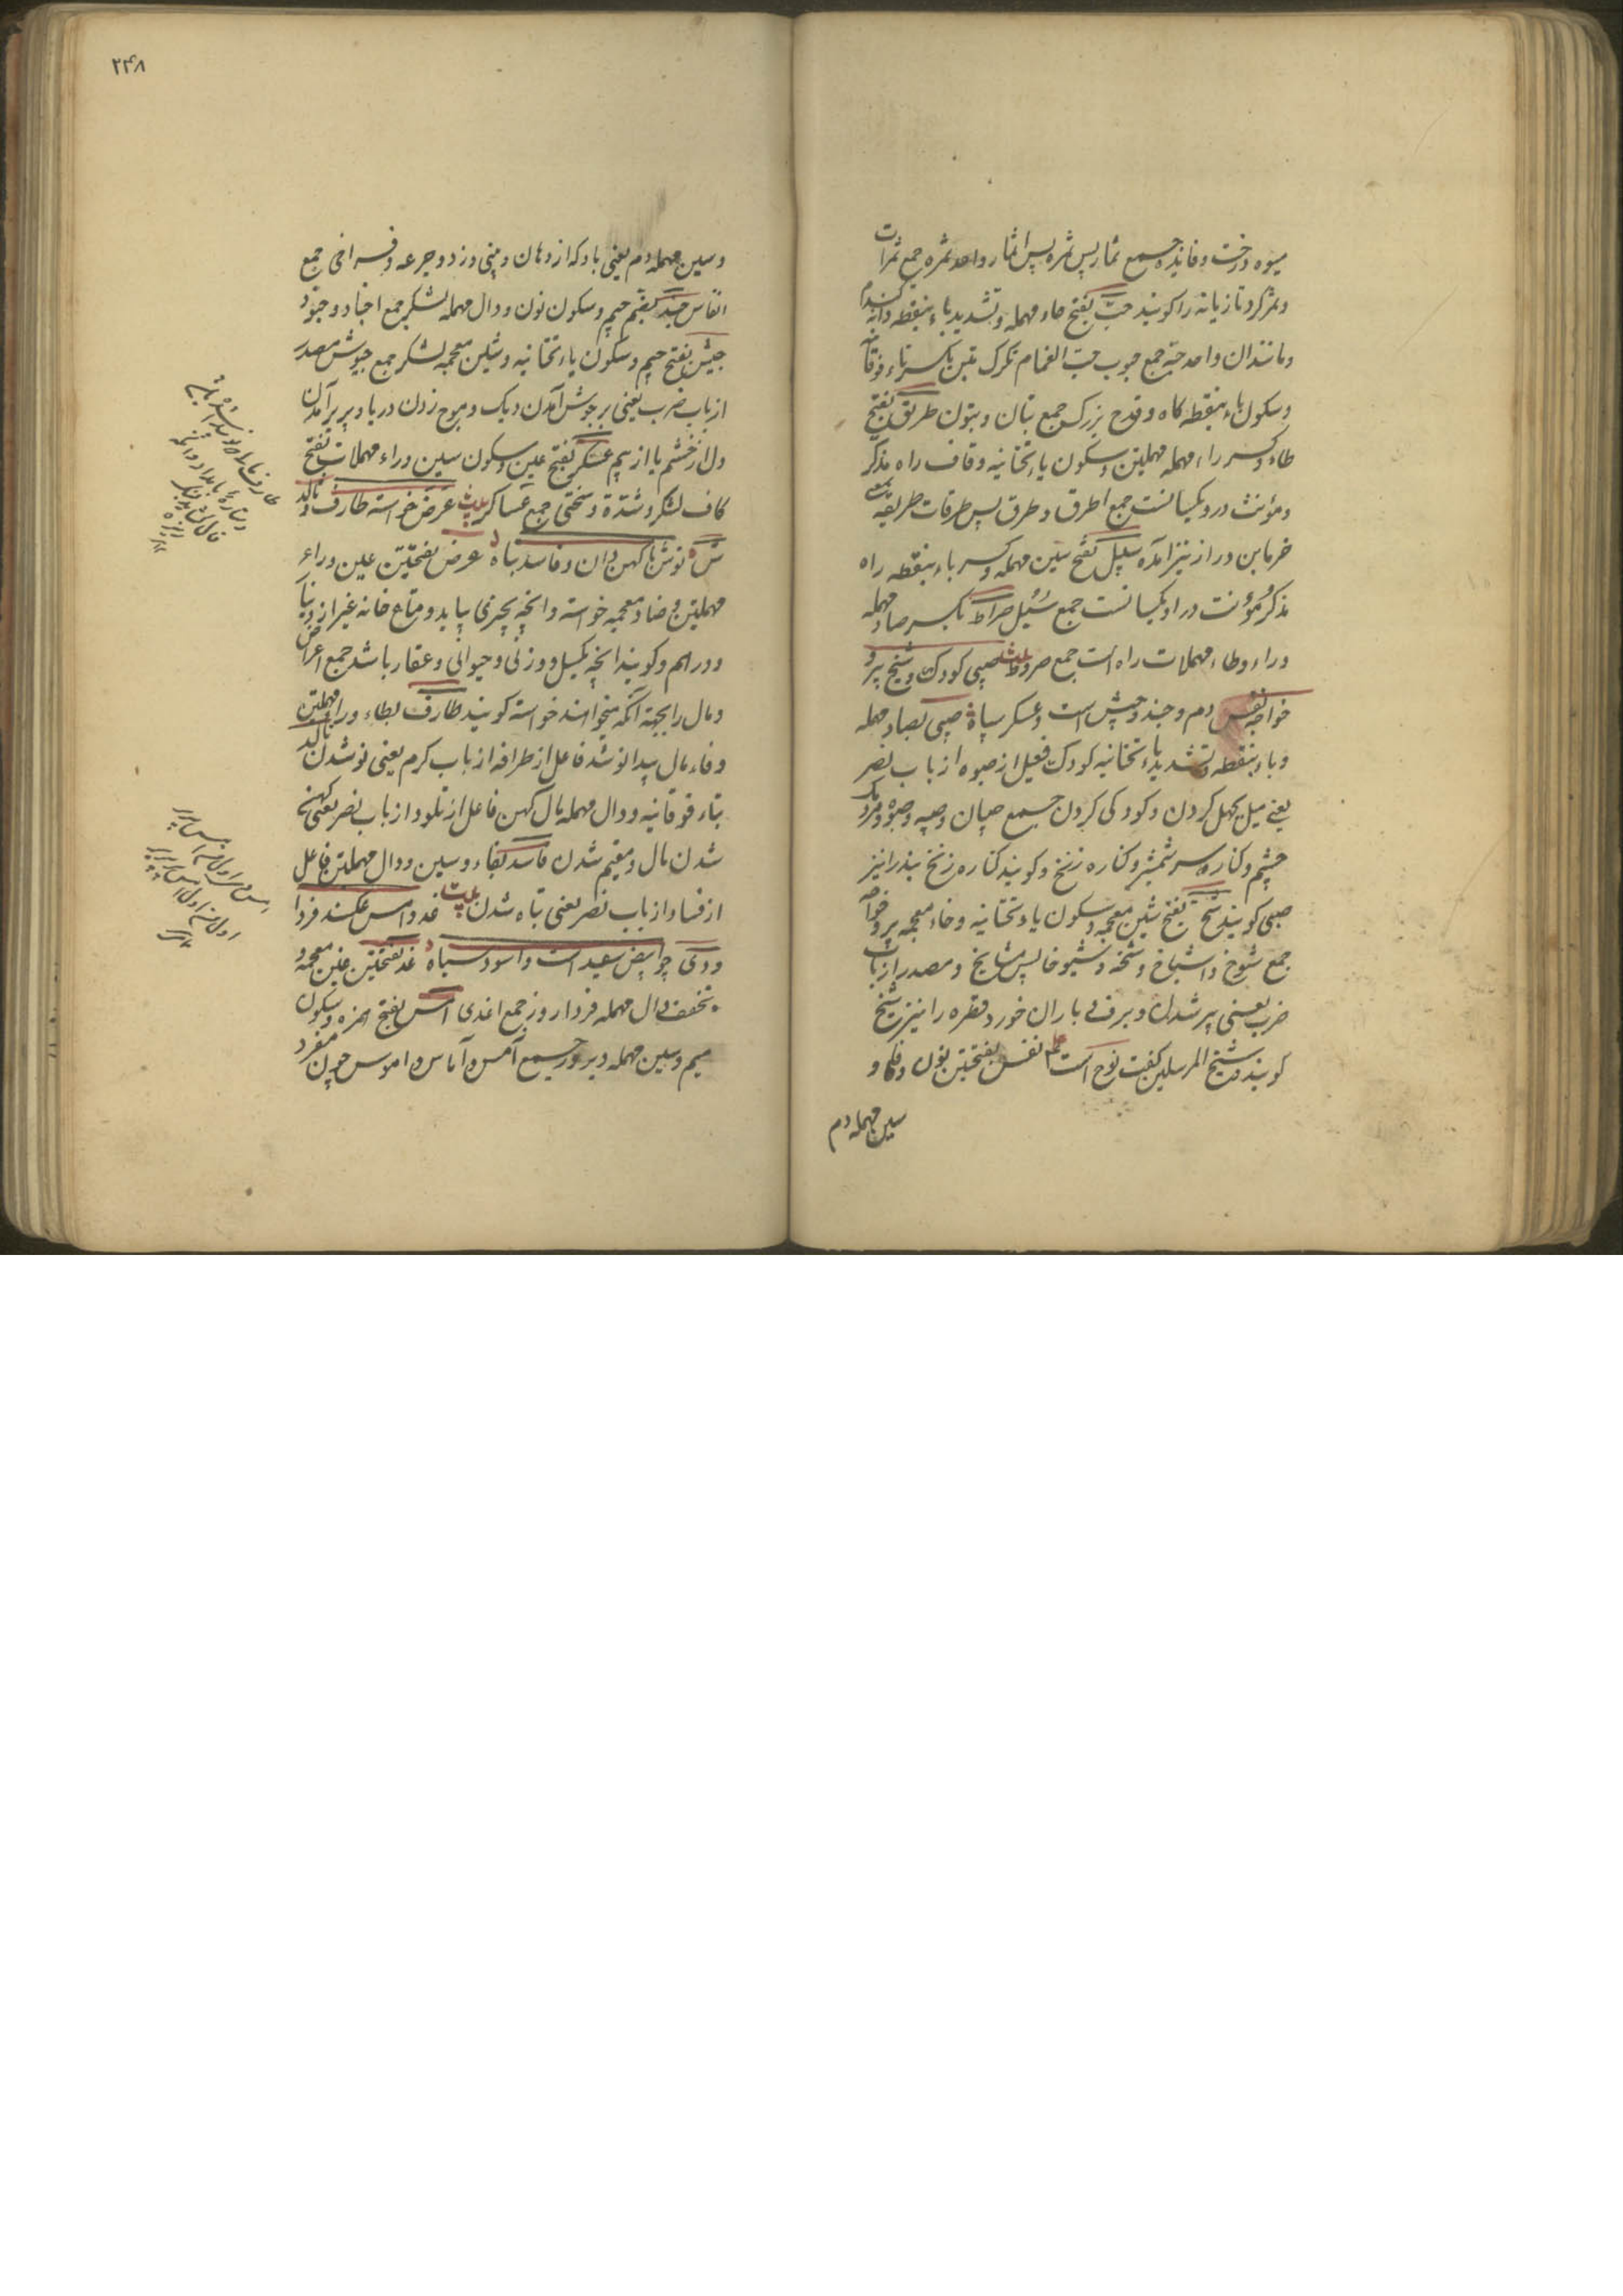 میوه درخت و فائده جمع ثمار پس ثمره پس اثمار واحد ثمره جمع ثمرات
و ثمر کرد تازیانه را کویند حب بفتح حاء مهمله و تشدید باء بنقطه دانه کندم
و مانند ان واحد حبة جمع حبوب حب الغمام تکرک تبن بکسر تاء فوقانیه
و سکون باء بنقطه کاه و قدح بزرک جمع تبان و تبون طریق بفتح
طاء و کسر راء مهمله مهملتین و سکون یاء تحتانیه و قاف راه مذکر
و مؤنث درو یکسانست جمع اطرق و طرق پس طرقات طریقه
خرمابن دراز نیز امده سبیل بفتح سین مهمله و کسر باء بنقطه راه
مذکر و مؤنث در او یکسانست جمع سبل صراط بکسر صاد مهمله
و راء و طاء مهملات راه است جمع صروط صبی کودک و شیخ پیر و
خواجه نفس دم و جند و جیش است و عسکر سپاه صبی بصاد مهمله
و باء بنقطه و تشدید یاء تحتانیه کودک فعیل از صبوه از باب نصر
یعنی میل بجهل کردن و کودکی کردن جمع صبیان و صبیه و صبوه و مردمک
چشم و کناره سر شمشیر و کناره زنخ و کویند کناره زنخ بند را نیز
صبی کویند شیخ بفتح شین معجمه و سکون یاء تحتانیه و خاء معجمه پیر و خواجه
جمع شیوخ و اشیاخ و شیخه و شیوخا پس مشایخ و مصدر از باب
ضرب یعنی پیر شدن و برف بی باران خورد قطره را نیز شیخ
کویند و شیخ المرسلین کنیت نوح است نفس بفتحتین نون و فاء و
سین مهمله دم
۲۴۸
و سین مهمله دم یعنی باد که از دهان و بینی وزد و جرعه و فراخی جمع
انفاس جند بضم جیم و سکون نون و دال مهمله لشکر جمع اجناد و جنود
جیش بفتح جیم و سکون یاء تحتانیه و شین معجمه لشکر جمع جیوش مصدر
از باب ضرب یعنی برجوش آمدن دیک و موج زدن دریا و بر آمدن
دل از خشم یا از بیم عسکر بفتح عین و سکون سین و راء مهملات بفتح
کاف لشکر و شدة و سختی جمع عساکر عرض خواسته طارف و تالد
نوش با کهن دان و فاسد تباه عرض بفتحتین عین و راء
مهملتین و ضاد معجمه خواسته و انچه بچیزی بیاید و متاع خانه غیر از دینار
و دراهم و کویند انچه بکیل و وزنی و حیوانی و عقار باشد جمع اعراض
و مال را بجهة آنکه میخواهند خواسته کویند طارف بطاء و راء مهملتین
و فاء مال پیدا نو شد فاعل از طرافه از باب کرم یعنی نو شدن تالد
بتاء فوقانیه و دال مهمله مال کهن فاعل از تلود از باب نصر یعنی کهنه
شدن مال و مقیم شدن فاسد بفاء و سین و دال مهملتین فاعل
از فساد از باب نصر یعنی تباه شدن غد و امس عکسند فردا
و دی چو ابیض سفید است و اسود سیاه غد بفتحتین غین معجمه و
تخفیف دال مهمله فردا روز جمع اغدی امس بفتح همزه و سکون
میم و سین مهمله دیروز جمع آمس و آماس و اموس چون مفرد